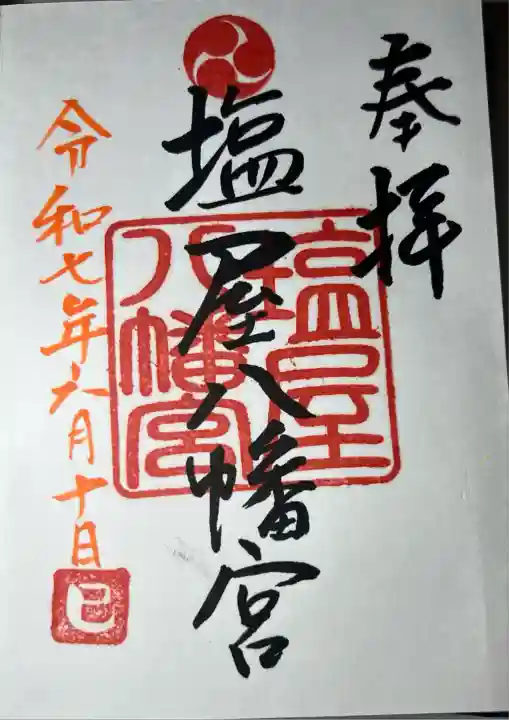 奉拝
塩屋八幡宮
塩屋
八幡宮
令和七年六月十日
巳